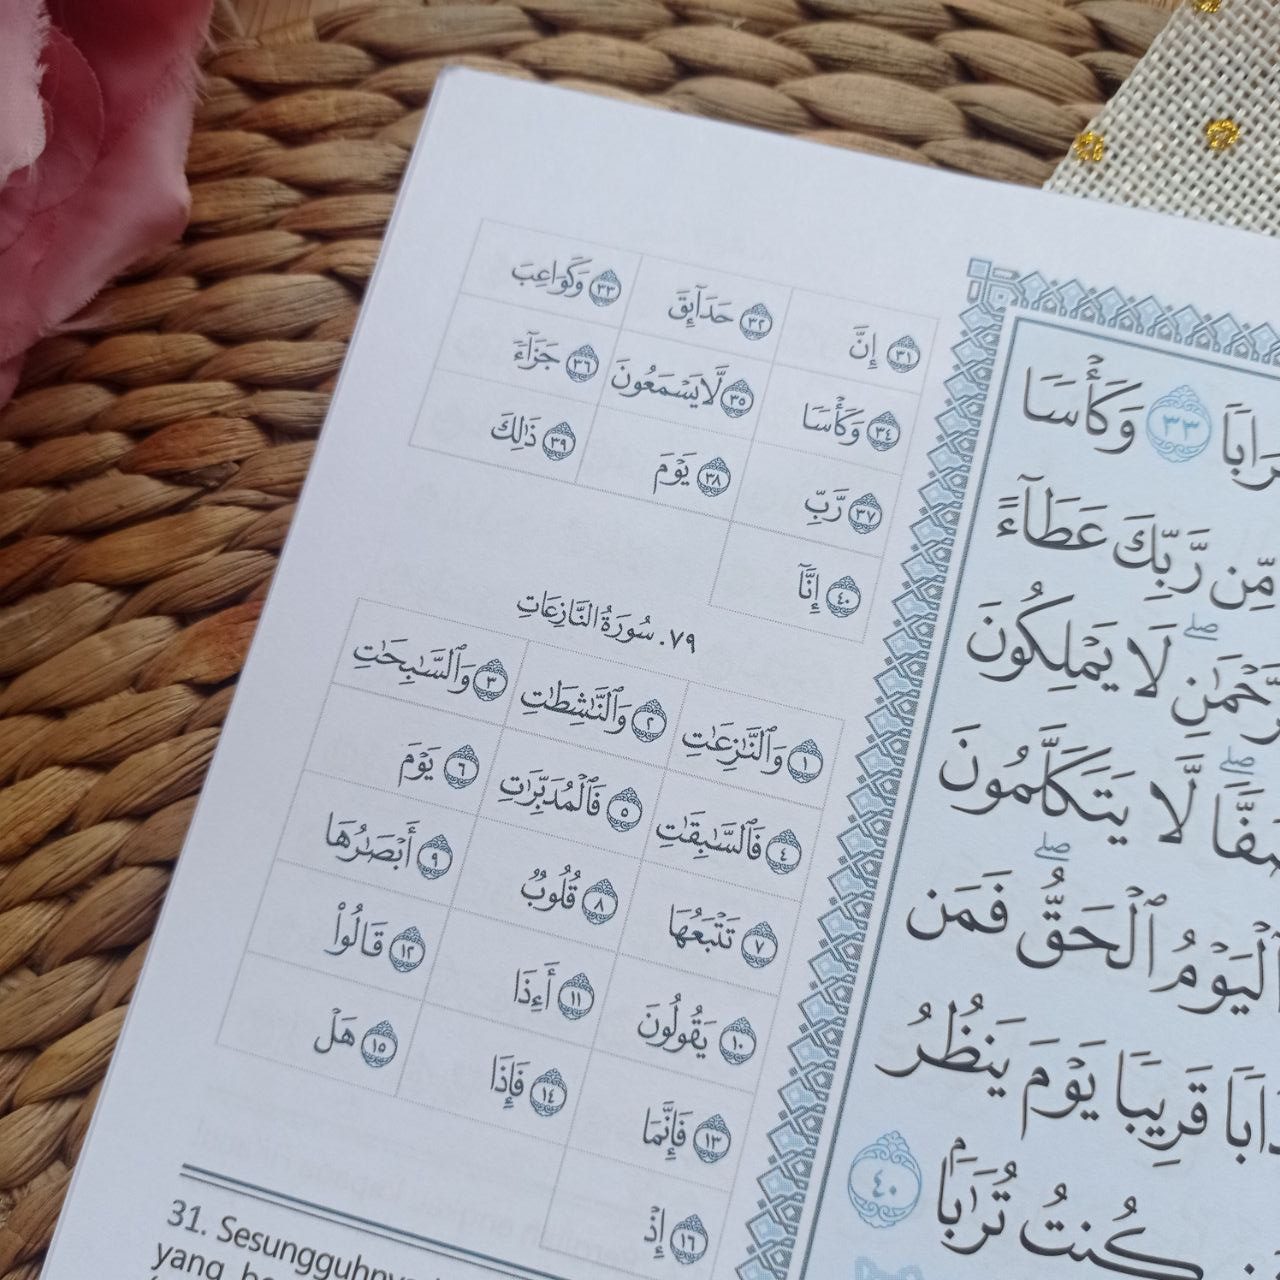 ٣١ إِنَّ ٣٢ حَدَآئِقَ ٣٣ وَكَوَاعِبَ
٣٤ وَكَأْسًا ٣٥ لَّا يَسْمَعُونَ ٣٦ جَزَآءً
٣٧ رَّبِّ ٣٨ يَوْمَ ٣٩ ذَٰلِكَ
٤٠ إِنَّآ
٧٩. سُورَةُ النَّازِعَاتِ
١ وَٱلنَّٰزِعَٰتِ ٢ وَٱلنَّٰشِطَٰتِ ٣ وَٱلسَّٰبِحَٰتِ
٤ فَٱلسَّٰبِقَٰتِ ٥ فَٱلْمُدَبِّرَٰتِ ٦ يَوْمَ
٧ تَتْبَعُهَا ٨ قُلُوبٌ ٩ أَبْصَٰرُهَا
١٠ يَقُولُونَ ١١ أَءِذَا ١٢ قَالُوا۟
١٣ فَإِنَّمَا ١٤ فَإِذَا ١٥ هَلْ
١٦ إِذْ
31. Sesungguhnya
yang
٣٣ وَكَأْسًا
مِّن رَّبِّكَ عَطَآءً
لَا يَمْلِكُونَ
لَّا يَتَكَلَّمُونَ
ٱلْيَوْمُ ٱلْحَقُّ ۖ فَمَن
قَرِيبًا يَوْمَ يَنظُرُ
كُنتُ تُرَٰبًۢا ٤٠